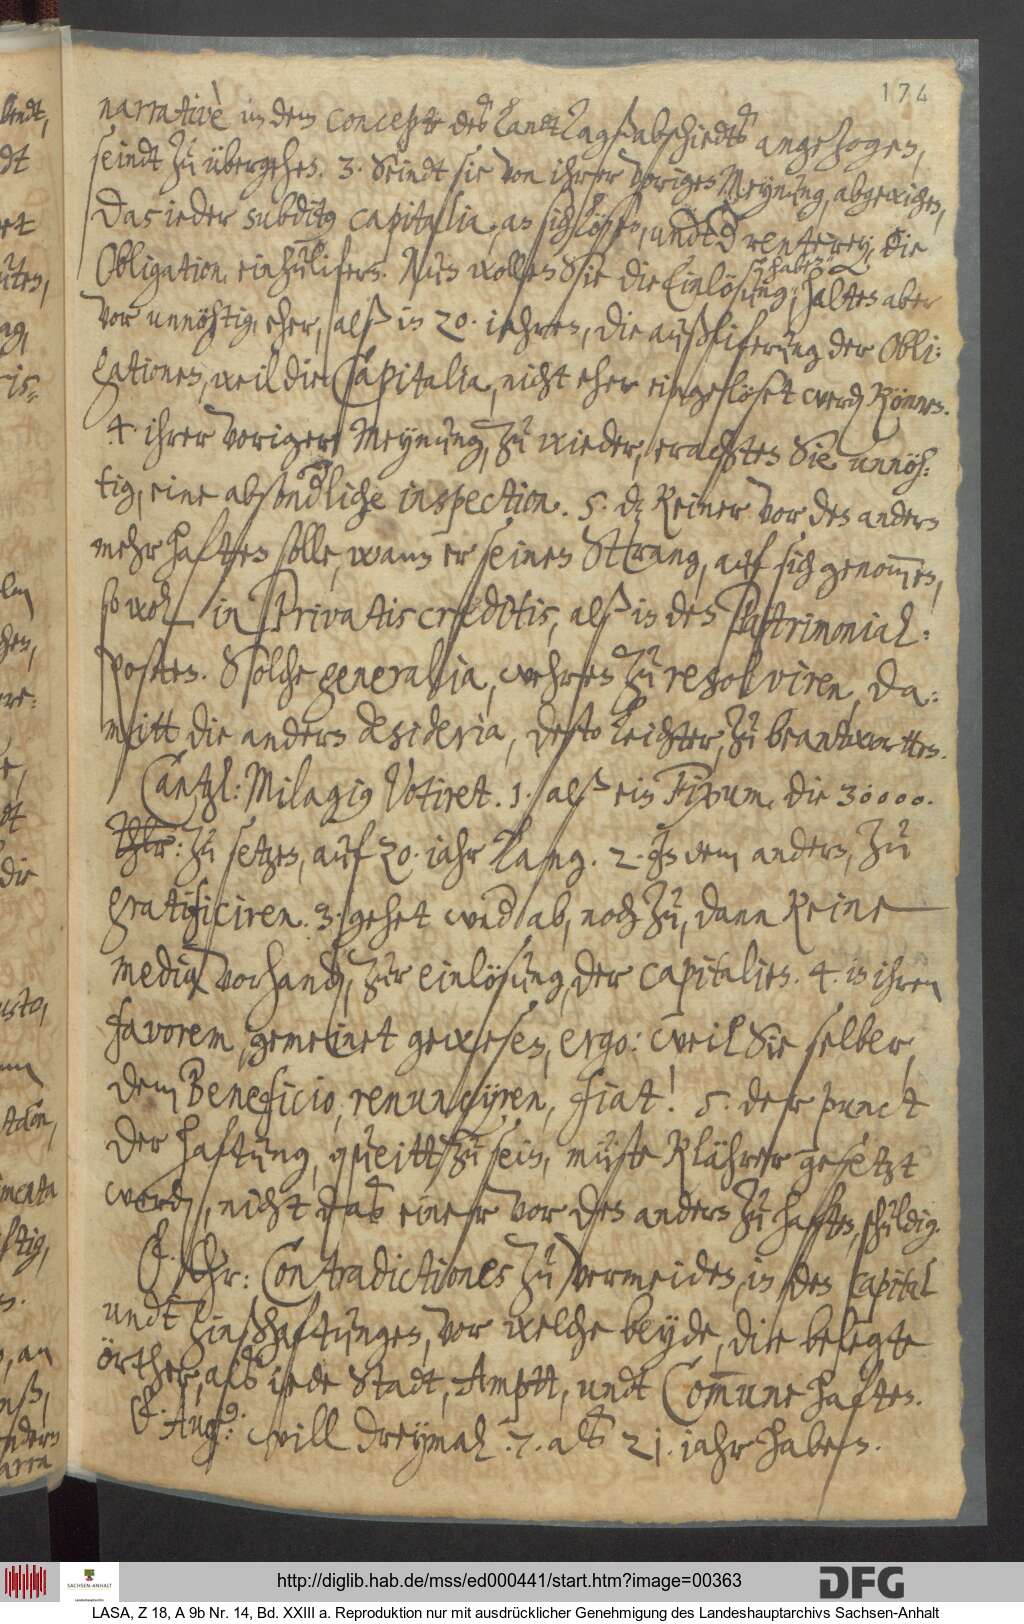 174
narrativè in dem Concepte des LandtLagsabschiedts angezogen,
seindt zu übergehen. 3. Seindt sie von ihrer vorigen Meynung, abgewichen,
Das ieder subditus capitalia, an sich lösen, undt d renterey, die
Obligation einzulifern. Nun wollen Sie die Einlösung, halten aber
so haben
vor unnöhtig, eher, alß in 20. iahren, die außliferung der Obli:
gationes, weil die Capitalia, nicht eher eingelöset werden können.
4. ihrer voriger Meynung, zu wieder, erachten Sie unnöh:
tig, eine absonderliche inspection. 5. dz Keiner vor den andern
mehr hafften solle, wann er seinen Strang, auf sich genommen,
so wol in Privatis creditis, alß in den Patrimonial:
posten. Solche generalia, wehren zu resolviren, da:
mitt die andern desideria, desto leichter, zu beantwortten.
Cantzl: Milagius Votiret. 1. alß ein Fixum, die 30000.
Thlr: zu setzen, auf 20. iahr lang. 2. In dem andern, zu
gratificiren. 3. gehet und ab, noch zu, dann Keine
media vorhanden, zur einlösung, der capitalien. 4. in ihren
favorem, gemeinet gewesen, ergo: weil Sie selber,
dem Beneficio, renuncijren, fiat! 5. der punct
der haftung, queitt zu sein, müste Klährer gesetzt
werden, nicht das einer vor den andern zu hafften, schuldig.
C. Chr: Contradictiones zu vermeiden, in den Capital
undt Zinßhaftungen, vor welche beyde, die belegte
örther, als iede Stadt, Amptt, undt Commune haften.
C. Aug: will dreymal .7. als 21. iahr haben.
http://diglib.hab.de/mss/ed000441/start.htm?image=00363
SACHSEN-ANHALT
DFG
LASA, Z 18, A 9b Nr. 14, Bd. XXIII a. Reproduktion nur mit ausdrücklicher Genehmigung des Landeshauptarchivs Sachsen-Anhalt